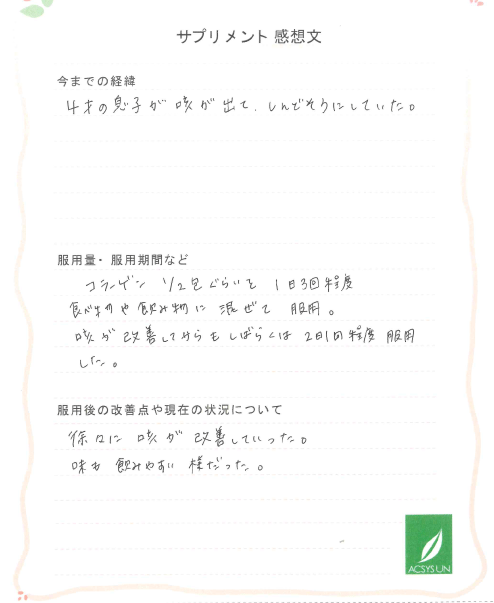 サプリメント 感想文
今までの経緯
4才の息子が 咳が 出て、しんどそうにしていた。
服用量・服用期間など
コラーゲン 1/2包ぐらいを 1日3回程度
食べ物や 飲み物に 混ぜて 服用。
咳が 改善してからも しばらくは 2日1回程度 服用
した。
服用後の改善点や現在の状況について
徐々に 咳が 改善していった。
味も 飲みやすい 様だった。
ACSYSUN